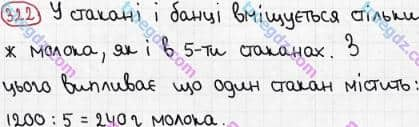 322 У стакані і банці вміщується стільки
ж молока, як і в 5-ти стаканах. З
цього випливає що один стакан містить:
1200 : 5 = 240 г молока.